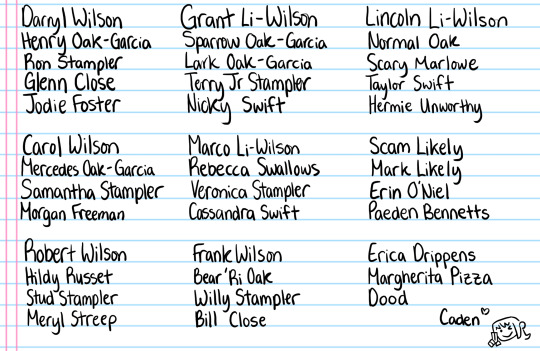 Darryl Wilson
Henry Oak-Garcia
Ron Stampler
Glenn Close
Jodie Foster
Grant Li-Wilson
Sparrow Oak-Garcia
Lark Oak-Garcia
Terry Jr Stampler
Nicky Swift
Lincoln Li-Wilson
Normal Oak
Scary Marlowe
Taylor Swift
Hermie Unworthy
Carol Wilson
Mercedes Oak-Garcia
Samantha Stampler
Morgan Freeman
Marco Li-Wilson
Rebecca Swallows
Veronica Stampler
Cassandra Swift
Scam Likely
Mark Likely
Erin O'Niel
Paeden Bennetts
Robert Wilson
Hildy Russet
Stud Stampler
Meryl Streep
Frank Wilson
Bear'Ri Oak
Willy Stampler
Bill Close
Erica Drippens
Margherita Pizza
Dood
Caden